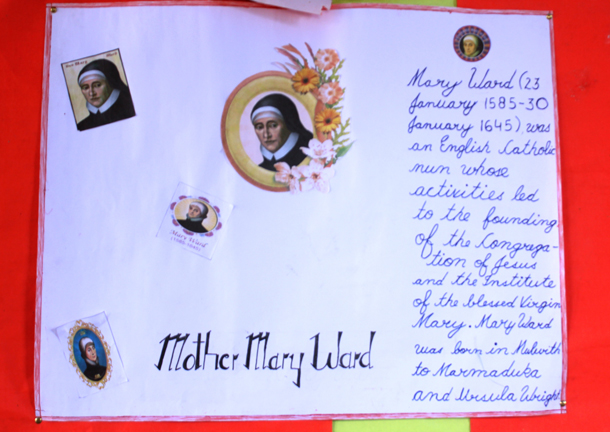 Mary Ward
(1585-1645)
Mother Mary Ward
Mary Ward (23
January 1585-30
January 1645) was
an English Catholic
nun whose
activities led
to the founding
of the Congrega-
tion of Jesus
and the Institute
of the blessed Virgin
Mary. Mary Ward
was born in Mulwith
to Marmaduka
and Ursula Wright